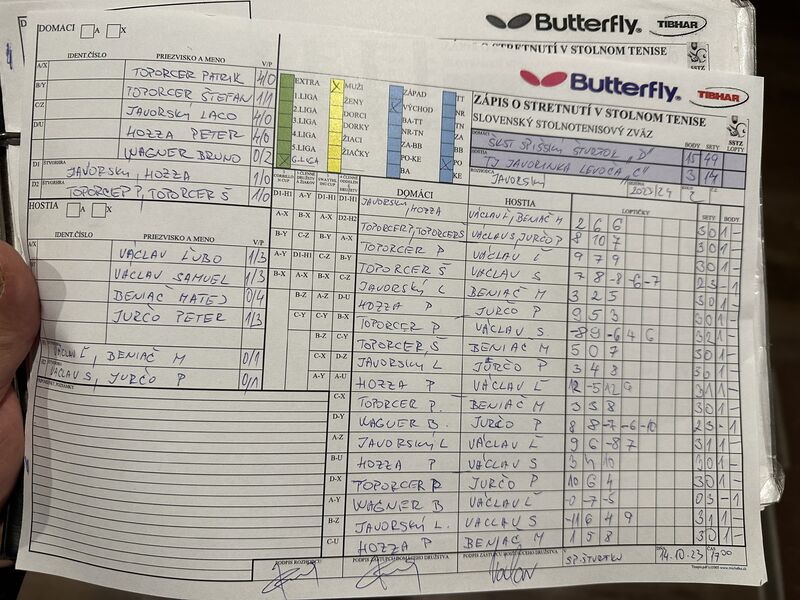 Butterfly
TIBHAR
ZÁPIS O STRETNUTÍ V STOLNOM TENISE
Butterfly
TIBHAR
ZÁPIS O STRETNUTÍ V STOLNOM TENISE
SLOVENSKÝ STOLNOTENISOVÝ ZVÄZ
SSTZ
LOPTY
DOMÁCI
BODY SETY
15 49
HOSTIA
TJ JAVORINKA LEVOČA "C"
3 14
JAVORSKÝ
2023/24
2
DOMÁCI A X
IDENT.ČÍSLO PRIEZVISKO A MENO V/P
A/X TOPORCER PATRIK 4/0
B/Y TOPORCER ŠTEFAN 1/1
C/Z JAVORSKÝ LACO 4/0
D/U HOZZA PETER 4/0
WAGNER BRUNO 0/2
D1 ŠTVORHRA JAVORSKÝ, HOZZA 1/0
D2 TOPORCER P, TOPORCER Š 1/0
HOSTIA A X
IDENT.ČÍSLO PRIEZVISKO A MENO V/P
A/X VÁCLAV ĽUBO 1/3
VÁCLAV SAMUEL 1/3
BENIAČ MATEJ 0/4
JURČO PETER 1/3
VÁCLAV Ľ, BENIAČ M 0/1
VÁCLAV S, JURČO P 0/1
EXTRA X MUŽI ZÁPAD TT
1.LIGA ŽENY X VÝCHOD NR
2.LIGA DORCI BA-TT TN
3.LIGA DORKY NR-TN ZA
4.LIGA ŽIACI ZA-BB BB
5.LIGA ŽIAČKY PO-KE X PO
X 6.LIGA BA KE
DOMÁCI HOSTIA LOPTIČKY SETY BODY
JAVORSKÝ, HOZZA VÁCLAV Ľ, BENIAČ M 2 6 6 3 0 1 -
TOPORCER P, TOPORCER Š VÁCLAV S, JURČO P 8 10 7 3 0 1 -
TOPORCER P VÁCLAV Ľ 9 7 9 3 0 1 -
TOPORCER Š VÁCLAV S 7 8 -8 -6 -7 2 3 - 1
JAVORSKÝ L BENIAČ M 3 2 5 3 0 1 -
HOZZA P JURČO P 9 5 3 3 0 1 -
TOPORCER P VÁCLAV S -8 9 -6 4 6 3 2 1 -
TOPORCER Š BENIAČ M 5 0 7 3 0 1 -
JAVORSKÝ L JURČO P 3 4 8 3 0 1 -
HOZZA P VÁCLAV Ľ 12 -5 12 9 3 1 1 -
TOPORCER P. BENIAČ M 3 3 8 3 0 1 -
WAGNER B. JURČO P 8 8 -7 -6 -10 2 3 - 1
JAVORSKÝ L VÁCLAV Ľ 9 6 -8 7 3 1 1 -
HOZZA P VÁCLAV S 3 4 10 3 0 1 -
TOPORCER P JURČO P 10 6 4 3 0 1 -
WAGNER B VÁCLAV Ľ -0 -7 -5 0 3 - 1
JAVORSKÝ L. VÁCLAV S -11 6 4 9 3 1 1 -
HOZZA P BENIAČ M 1 5 8 3 0 1 -
PODPIS ROZHODCU
PODPIS ZÁSTUPCU DOMÁCEHO DRUŽSTVA
PODPIS ZÁSTUPCU HOSŤUJÚCEHO DRUŽSTVA
SP.ŠTVRTOK
14.10.23
17:00